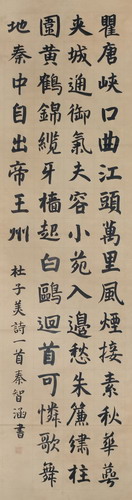 瞿唐峽口曲江頭萬里風煙接素秋華萼
夾城通御氣夫容小苑入邊愁朱簾繡柱
圍黃鶴錦纜牙檣起白鷗迴首可憐歌舞
地秦中自古帝王州
杜子美詩一首秦智涵書